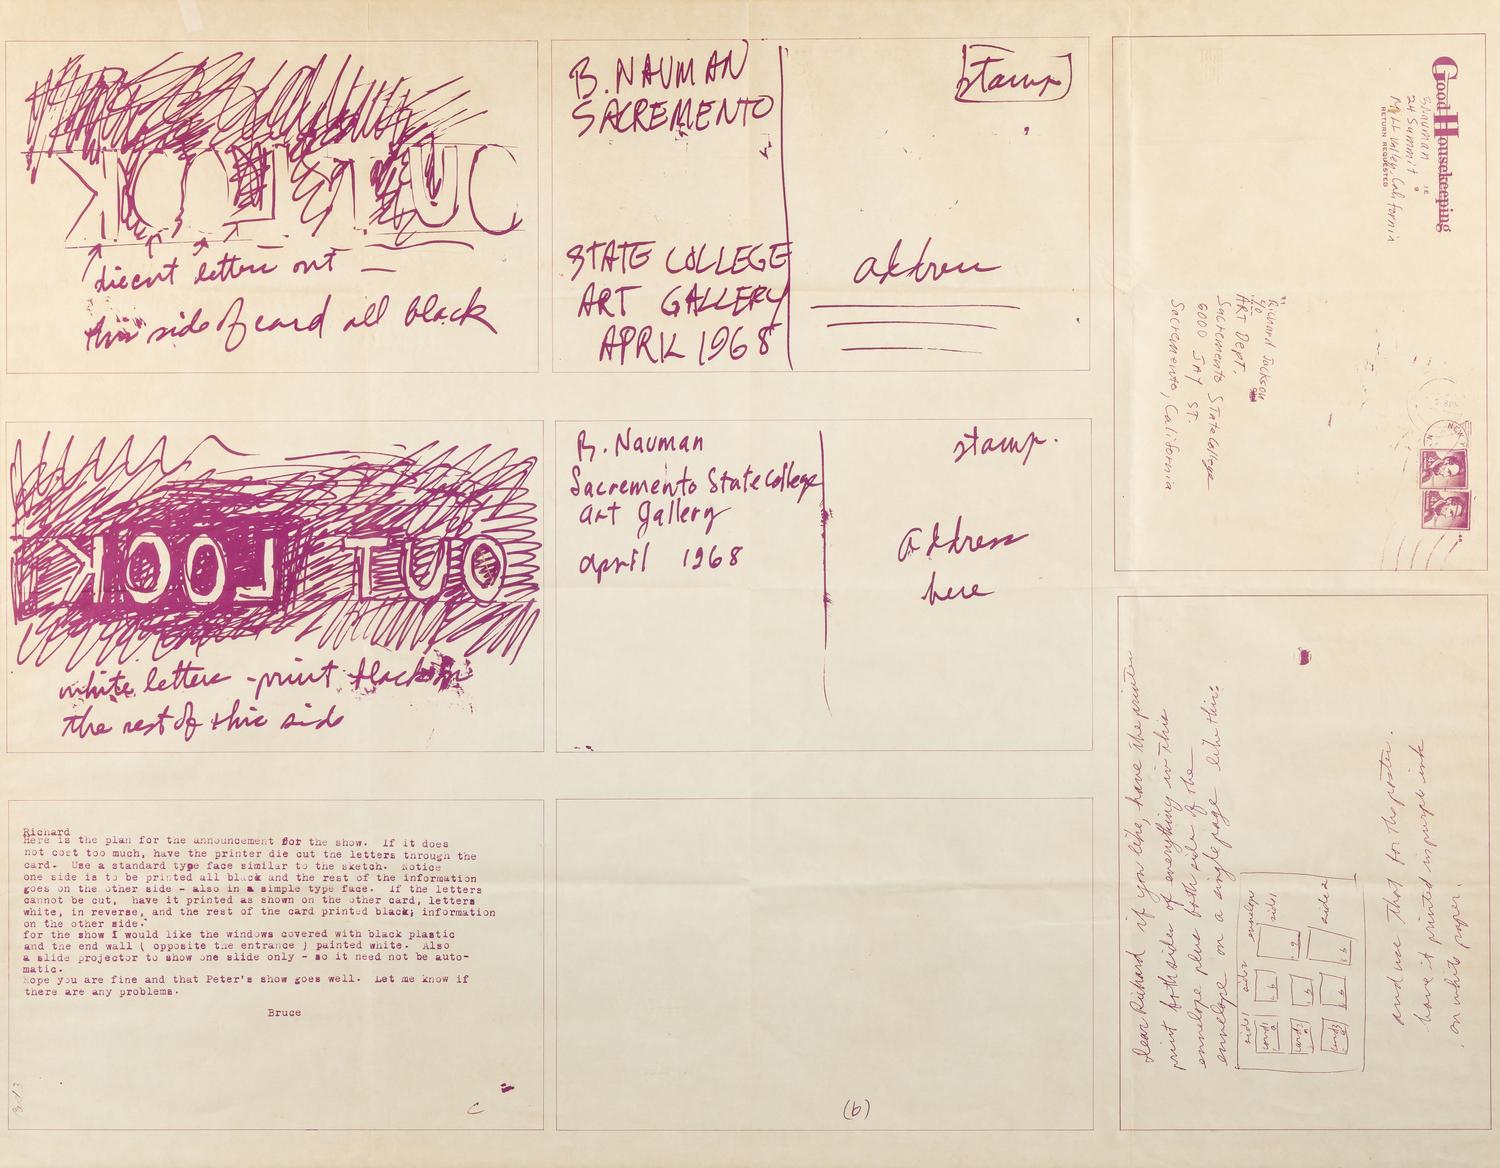 LOOK OUT
diecut letters out —
this side of card all black
B. NAUMAN
SACREMENTO
stamp
STATE COLLEGE
ART GALLERY
APRIL 1968
address
LOOK OUT
white letters - print black on
the rest of this side
B. Nauman
Sacremento State College
art gallery
april 1968
stamp.
address
here
Richard
Here is the plan for the announcement for the show. If it does
not cost too much, have the printer die cut the letters through the
card. Use a standard type face similar to the sketch. Notice
one side is to be printed all black and the rest of the information
goes on the other side - also in a simple type face. If the letters
cannot be cut, have it printed as shown on the other card, letters
white, in reverse, and the rest of the card printed black; information
on the other side.
for the show I would like the windows covered with black plastic
and the end wall ( opposite the entrance ) painted white. Also
a slide projector to show one slide only - so it need not be auto-
matic.
Hope you are fine and that Peter's show goes well. Let me know if
there are any problems.
Bruce
C
(b)
Good Housekeeping
BNauman
24 Summit
Mill Valley, California
RETURN REQUESTED
Richard Jackson
c/o
ART Dept.
Sacremento State College
6000 JAY ST.
Sacremento, California
Dear Richard if you like, have the printer
print both sides of everything in this
envelope plus both sides of the
envelope on a single page like this:
side 1 side 2 envelope
side 1
card 1
card 2
card 3
side 2
and use that for the poster.
have it printed in purple ink
on white paper.